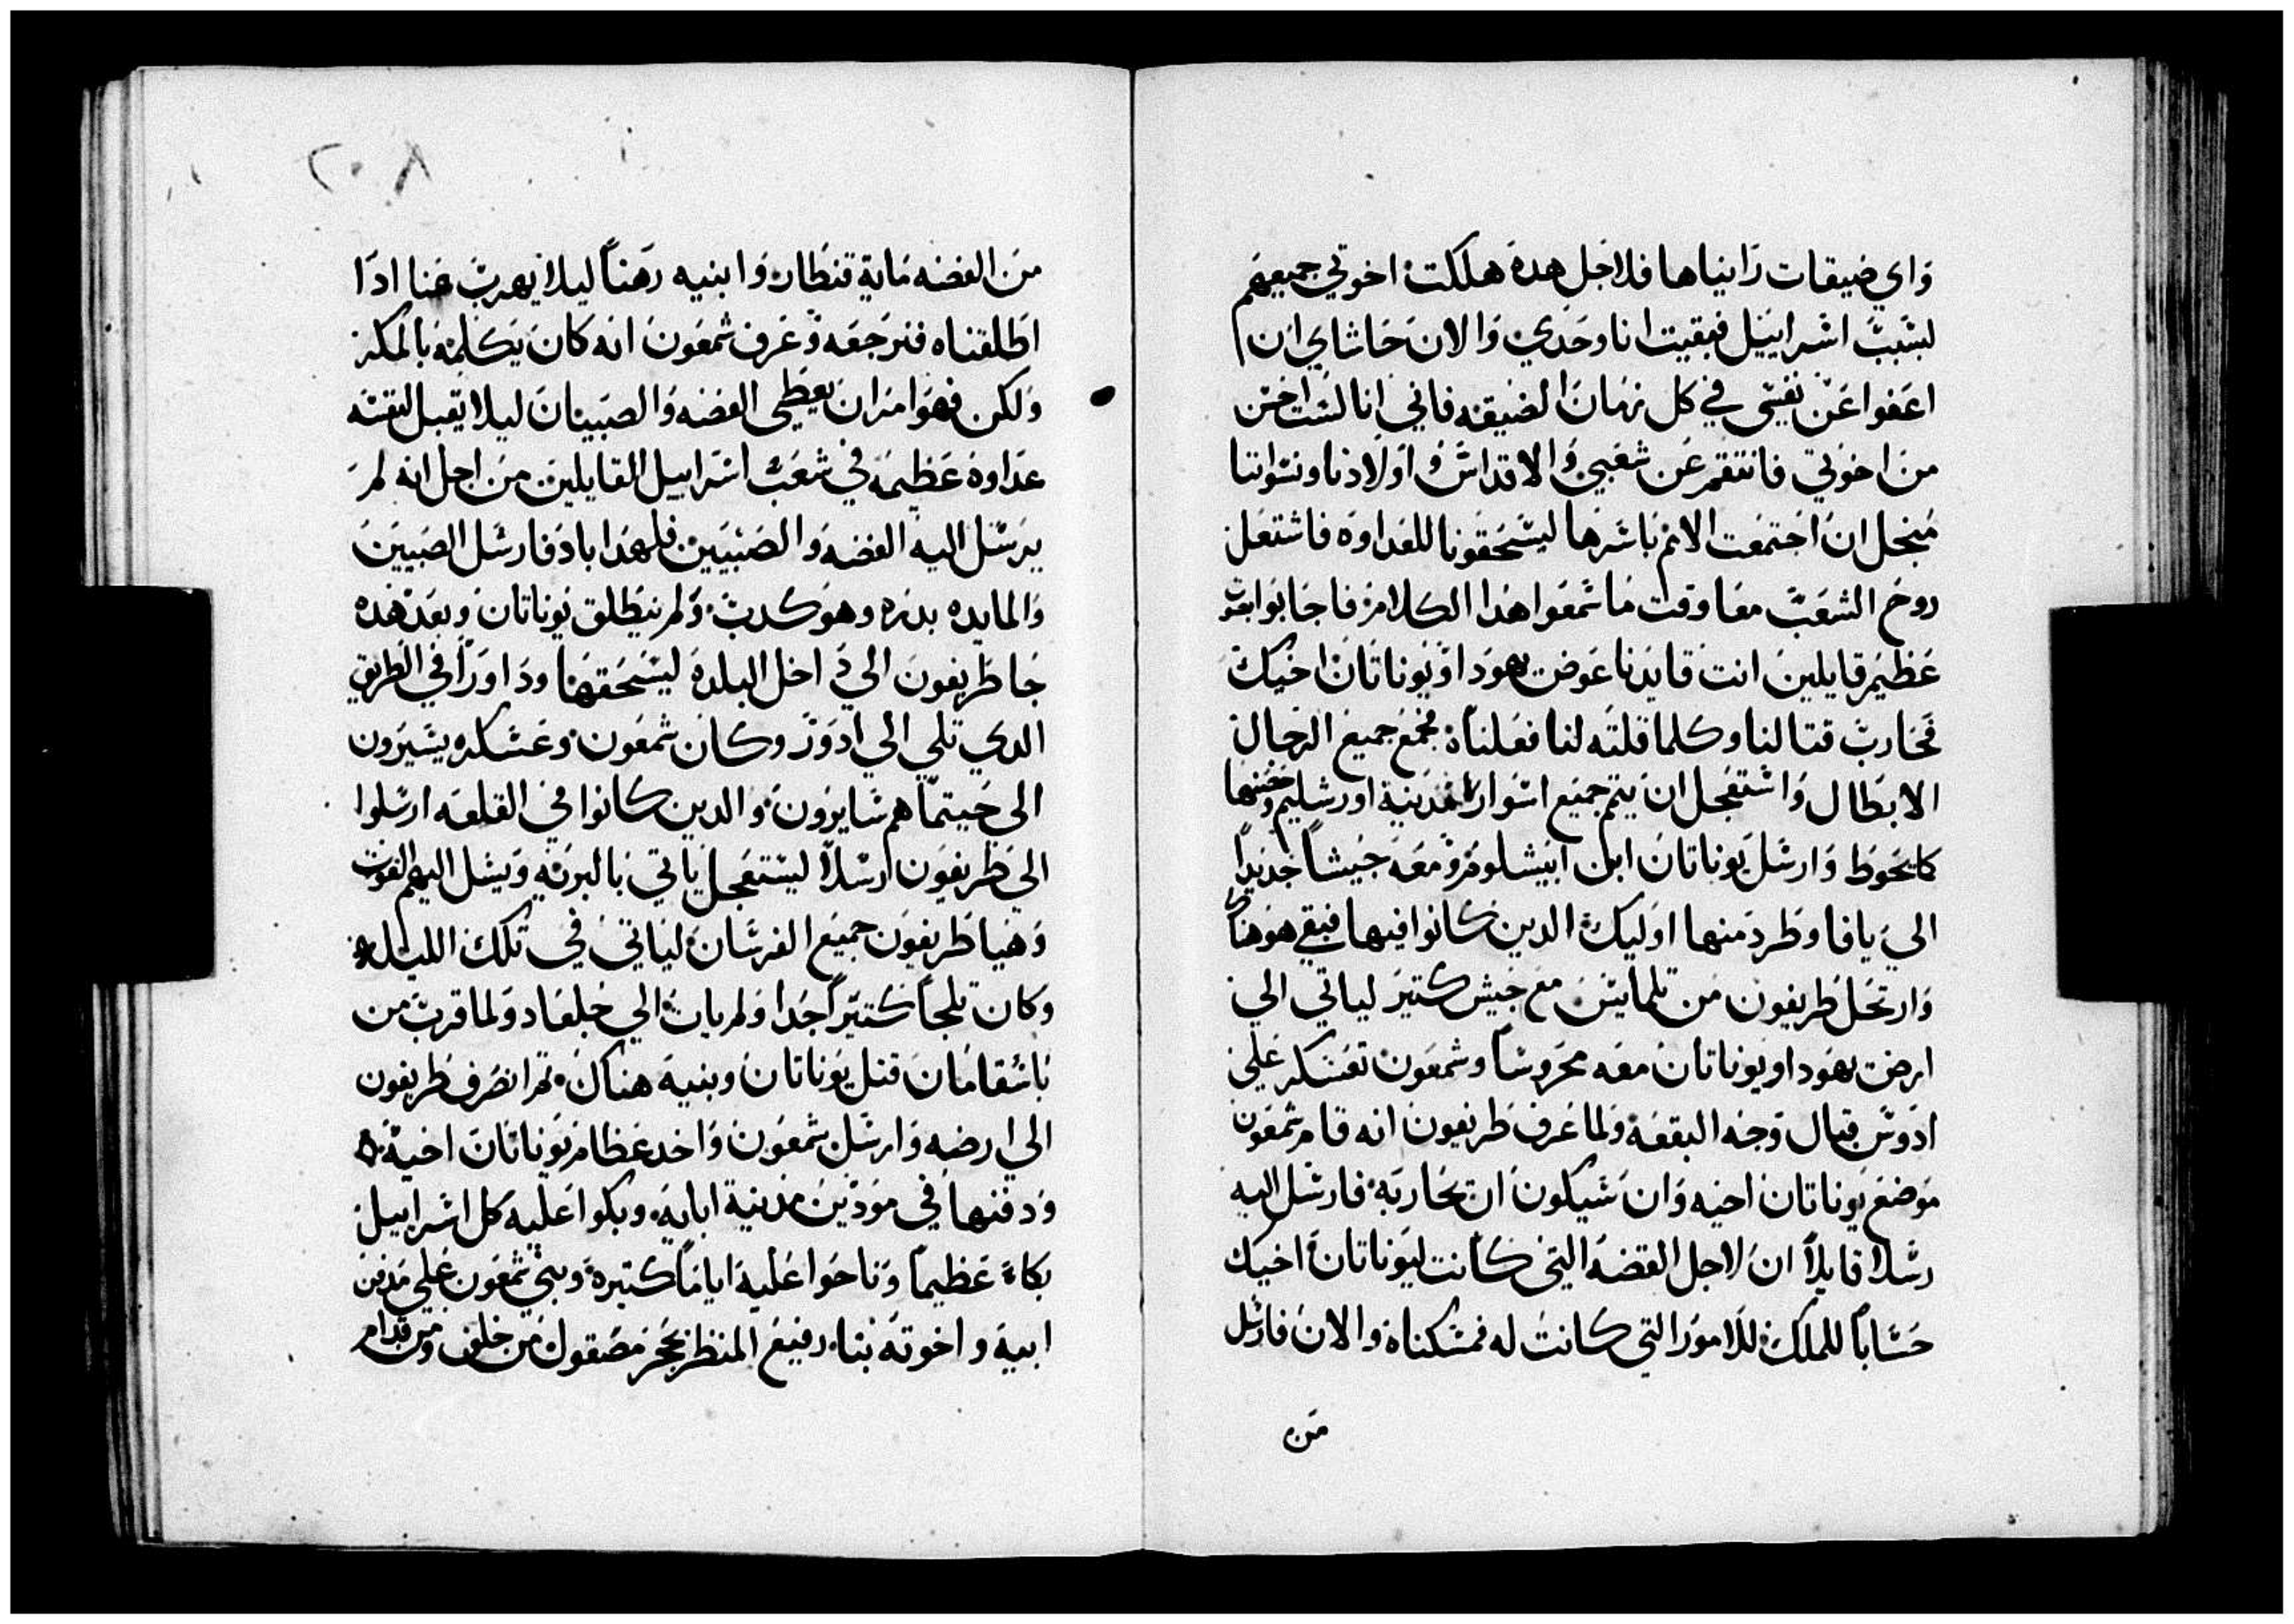 واي ضيقات راينياها فلاجل هده هلكت اخوتي جميعهم
لسبب اسراييل فبقيت انا وحدي والان حاشاي ان
اعفوا عن نفسي في كل زمان الضيقه فاني انا لست اخن
من اخوتي فانتقم عن شعبي والاقداس واولادنا ونسواننا
منجل ان اجتمعت الامم باسرها ليسحقونا للعداوه فاشتعل
روح الشعب معا وقت ما سمعوا هدا الكلام فاجابوا بصوت
عظيم قايلين انت قايدنا عوض يهودا ويوناتان اخيك
فحارب قتالنا وكلما قلته لنا فعلناه فجمع جميع الرجال
الابطال واستعجل ان يتم جميع اسوار مدينة اورشليم وحصنها
كالحوط وارسل يوناتان ابن ابيشلوم ومعه جيشاً جديداً
الي يافا وطرد منها اوليك الدين كانوا فيها فبقي هو هناك
وارتحل طريفون من تلمايس مع جيش كتير لياتي الي
ارض يهودا ويوناتان معه محروساً وشمعون تعسكر علي
ادوس قبال وجه البقعه ولما عرف طريفون انه قام شمعون
موضع يوناتان اخيه وان سيكون ان يحاربه فارسل اليه
رسلا قايلاً ان لاجل الفضه التي كانت ليوناتان اخيك
حساباً للملك للامور التي كانت له فمسكناه والان فارسل
من
٢٠٨
من الفضه ماية قنطار وابنيه رهناً ليلا يهرب عنا ادا
اطلقناه فنرجعه وعرف شمعون انه كان يكلمه بالمكر
ولكن فهو امر ان يعطي الفضه والصبيان ليلا يقبل لنفسه
عداوه عظيمه في شعب اسراييل القايلين من اجل انه لم
يرسل اليه الفضه والصبيين فلهدا باد فارسل الصبيين
والمايه بدره وهو كدب ولم يطلق يوناتان وبعد هده
جا طريفون الي داخل البلده ليسحقها وداورا في الطريق
الدي تلي الي ادور وكان شمعون وعسكره يسيرون
الي حيتما هم سايرون والدين كانوا في القلعه ارسلوا
الي طريفون رسلاً ليستعجل ياتي بالبريه ويرسل اليهم القوت
وهيا طريفون جميع الفرسان لياتي في تلك الليل
وكان تلجاً كتيراً جدا ولم يات الي جلعاد ولما قرب من
باسقامان قتل يوناتان وبنيه هناك تم انصرف طريفون
الي ارضه وارسل شمعون واخد عظام يوناتان اخيه
ودفنها في مودين مدينة ابايه وبكوا عليه كل اسراييل
بكاء عظيماً وناحوا عليه اياماً كتيرة وبني شمعون علي مدفن
ابيه واخوته بناء رفيع المنظر بحجر مصقول من خلف ومن قدام